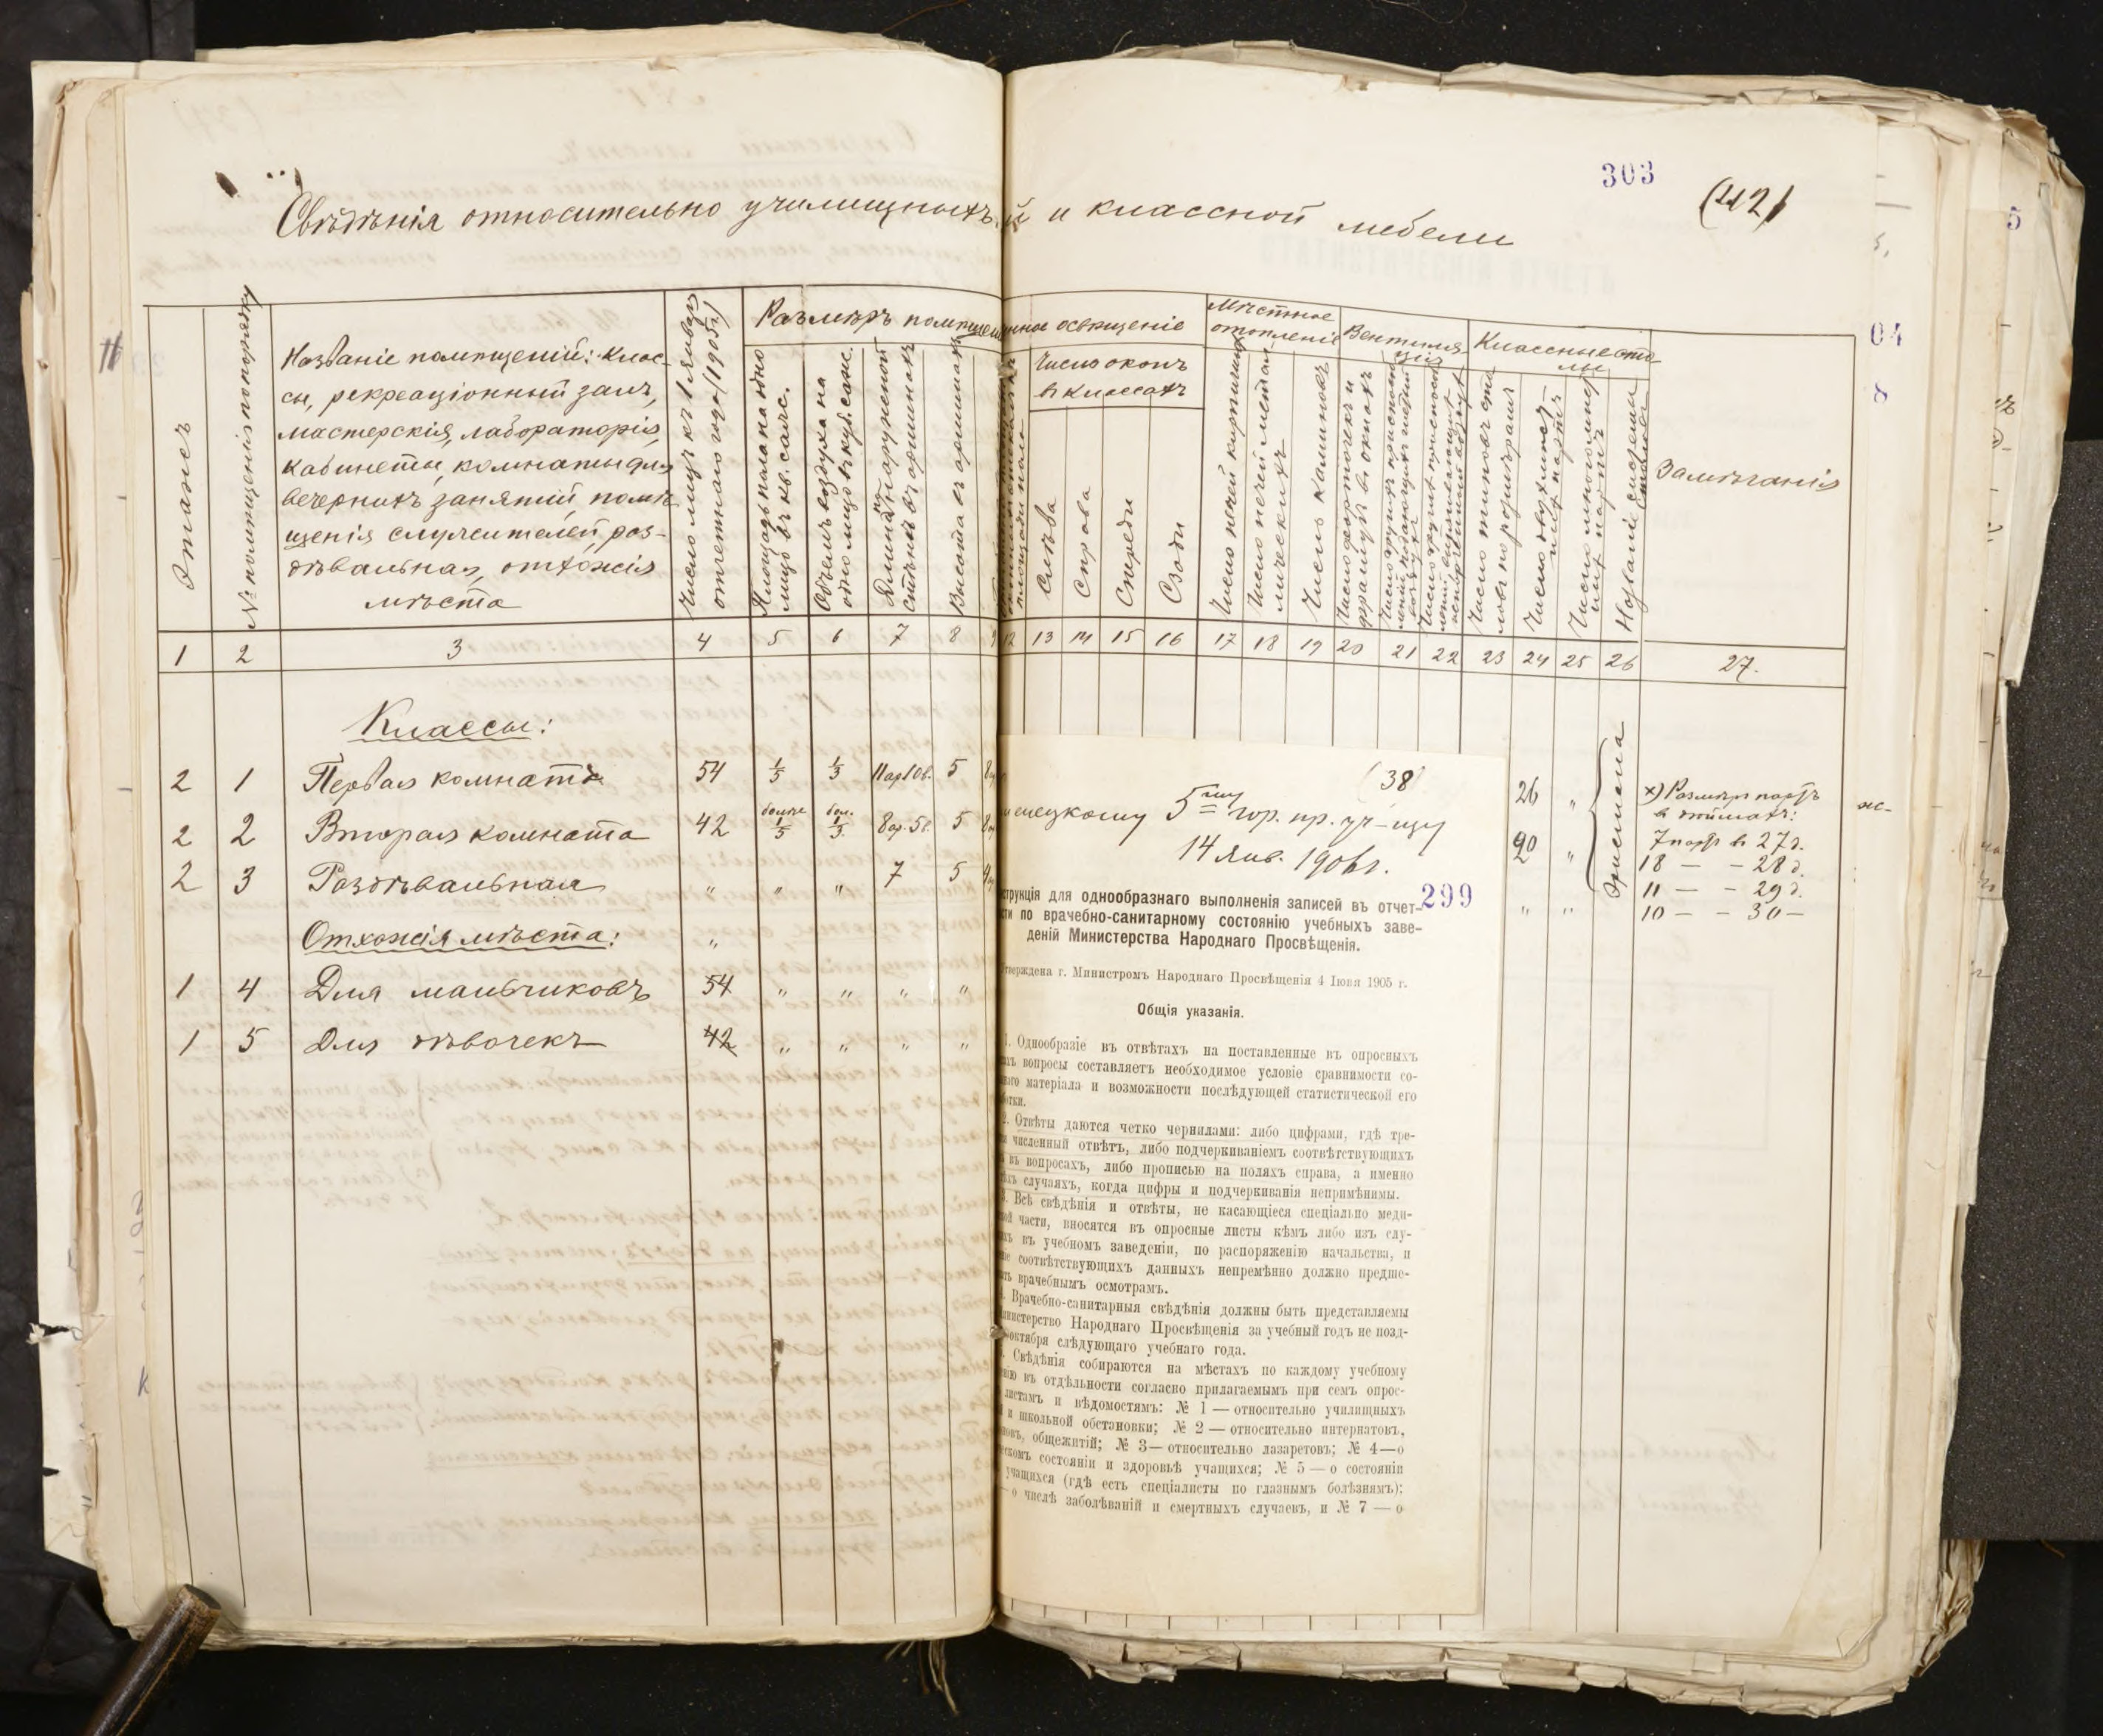 303
(42)
Свѣдѣнія относительно училищныхъ
й и классной мебели
Этажъ
№ помѣщенія по порядку
Названіе помѣщеній: клас-
сы, рекреаціонный залъ,
мастерскія, лабораторія,
кабинеты, комнаты для
вечернихъ занятій, помѣ-
щенія служителей, раз-
дѣвальная, отхожія
мѣста
Число лицъ къ 1 Января
отчетнаго года (1905 г.)
Размѣръ помѣщен
Площадь пола на одно
лицо въ кв. саж.
Объемъ воздуха на
одно лицо въ куб. саж.
Длина наружной
стѣны въ аршинахъ
Высота въ аршинахъ
нное освѣщеніе
площади пола
Число оконъ
въ классахъ
Слѣва
Справа
Спереди
Сзади
Мѣстное
отопленіе
Число печей кирпичныхъ
Число печей метал-
лическихъ
Число каминовъ
Вентиля-
ція
Число форточекъ и
фрамугъ въ окнахъ
Классные сто-
лы
Число двухмѣст-
ныхъ партъ
Число многомѣст-
ныхъ партъ
Названіе системы
Замѣчанія
1 2 3 4 5 6 7 8 9
12 13 14 15 16 17 18 19 20 21 22 23 24 25 26 27.
Классы:
2 1 Первая комната 54 1/5 1/3 11 ар 10 в. 5
2 2 Вторая комната 42 болѣе 1/5 бол. 1/3 8 ар. 5 в. 5
2 3 Раздѣвальная " " " 7 5
Отхожія мѣста: "
1 4 Для мальчиковъ 54 " " " "
1 5 Для дѣвочекъ 42 " " " "
26 "
20 "
" "
Эрисмана
х) Размѣръ партъ
въ дюймахъ:
7 парт въ 27 д.
18 — - 28 д.
11 — - 29 д.
10 — - 30 —
(38)
5 му гор. пр. уч-щу
14 Янв. 1906 г.
299
струкція для однообразнаго выполненія записей въ отчет-
сти по врачебно-санитарному состоянію учебныхъ заве-
деній Министерства Народнаго Просвѣщенія.
Утверждена г. Министромъ Народнаго Просвѣщенія 4 Іюня 1905 г.
Общія указанія.
1. Однообразіе въ отвѣтахъ на поставленные въ опросныхъ
хъ вопросы составляетъ необходимое условіе сравнимости со-
наго матеріала и возможности послѣдующей статистической его
ботки.
2. Отвѣты даются четко чернилами: либо цифрами, гдѣ тре-
я численный отвѣтъ, либо подчеркиваніемъ соотвѣтствующихъ
въ вопросахъ, либо прописью на поляхъ справа, а именно
хъ случаяхъ, когда цифры и подчеркиванія непримѣнимы.
3. Всѣ свѣдѣнія и отвѣты, не касающіеся спеціально меди-
ой части, вносятся въ опросные листы кѣмъ либо изъ слу-
хъ въ учебномъ заведеніи, по распоряженію начальства, и
іе соотвѣтствующихъ данныхъ непремѣнно должно предше-
ать врачебнымъ осмотрамъ.
. Врачебно-санитарныя свѣдѣнія должны быть представляемы
инистерство Народнаго Просвѣщенія за учебный годъ не позд-
октября слѣдующаго учебнаго года.
. Свѣдѣнія собираются на мѣстахъ по каждому учебному
нію въ отдѣльности согласно прилагаемымъ при семъ опрос-
листамъ и вѣдомостямъ: № 1 — относительно училищныхъ
й и школьной обстановки; № 2 — относительно интернатовъ,
новъ, общежитій; № 3 — относительно лазаретовъ; № 4 — о
скомъ состояніи и здоровьѣ учащихся; № 5 — о состояніи
учащихся (гдѣ есть спеціалисты по глазнымъ болѣзнямъ);
— о числѣ заболѣваній и смертныхъ случаевъ, и № 7 — о
5
04
8